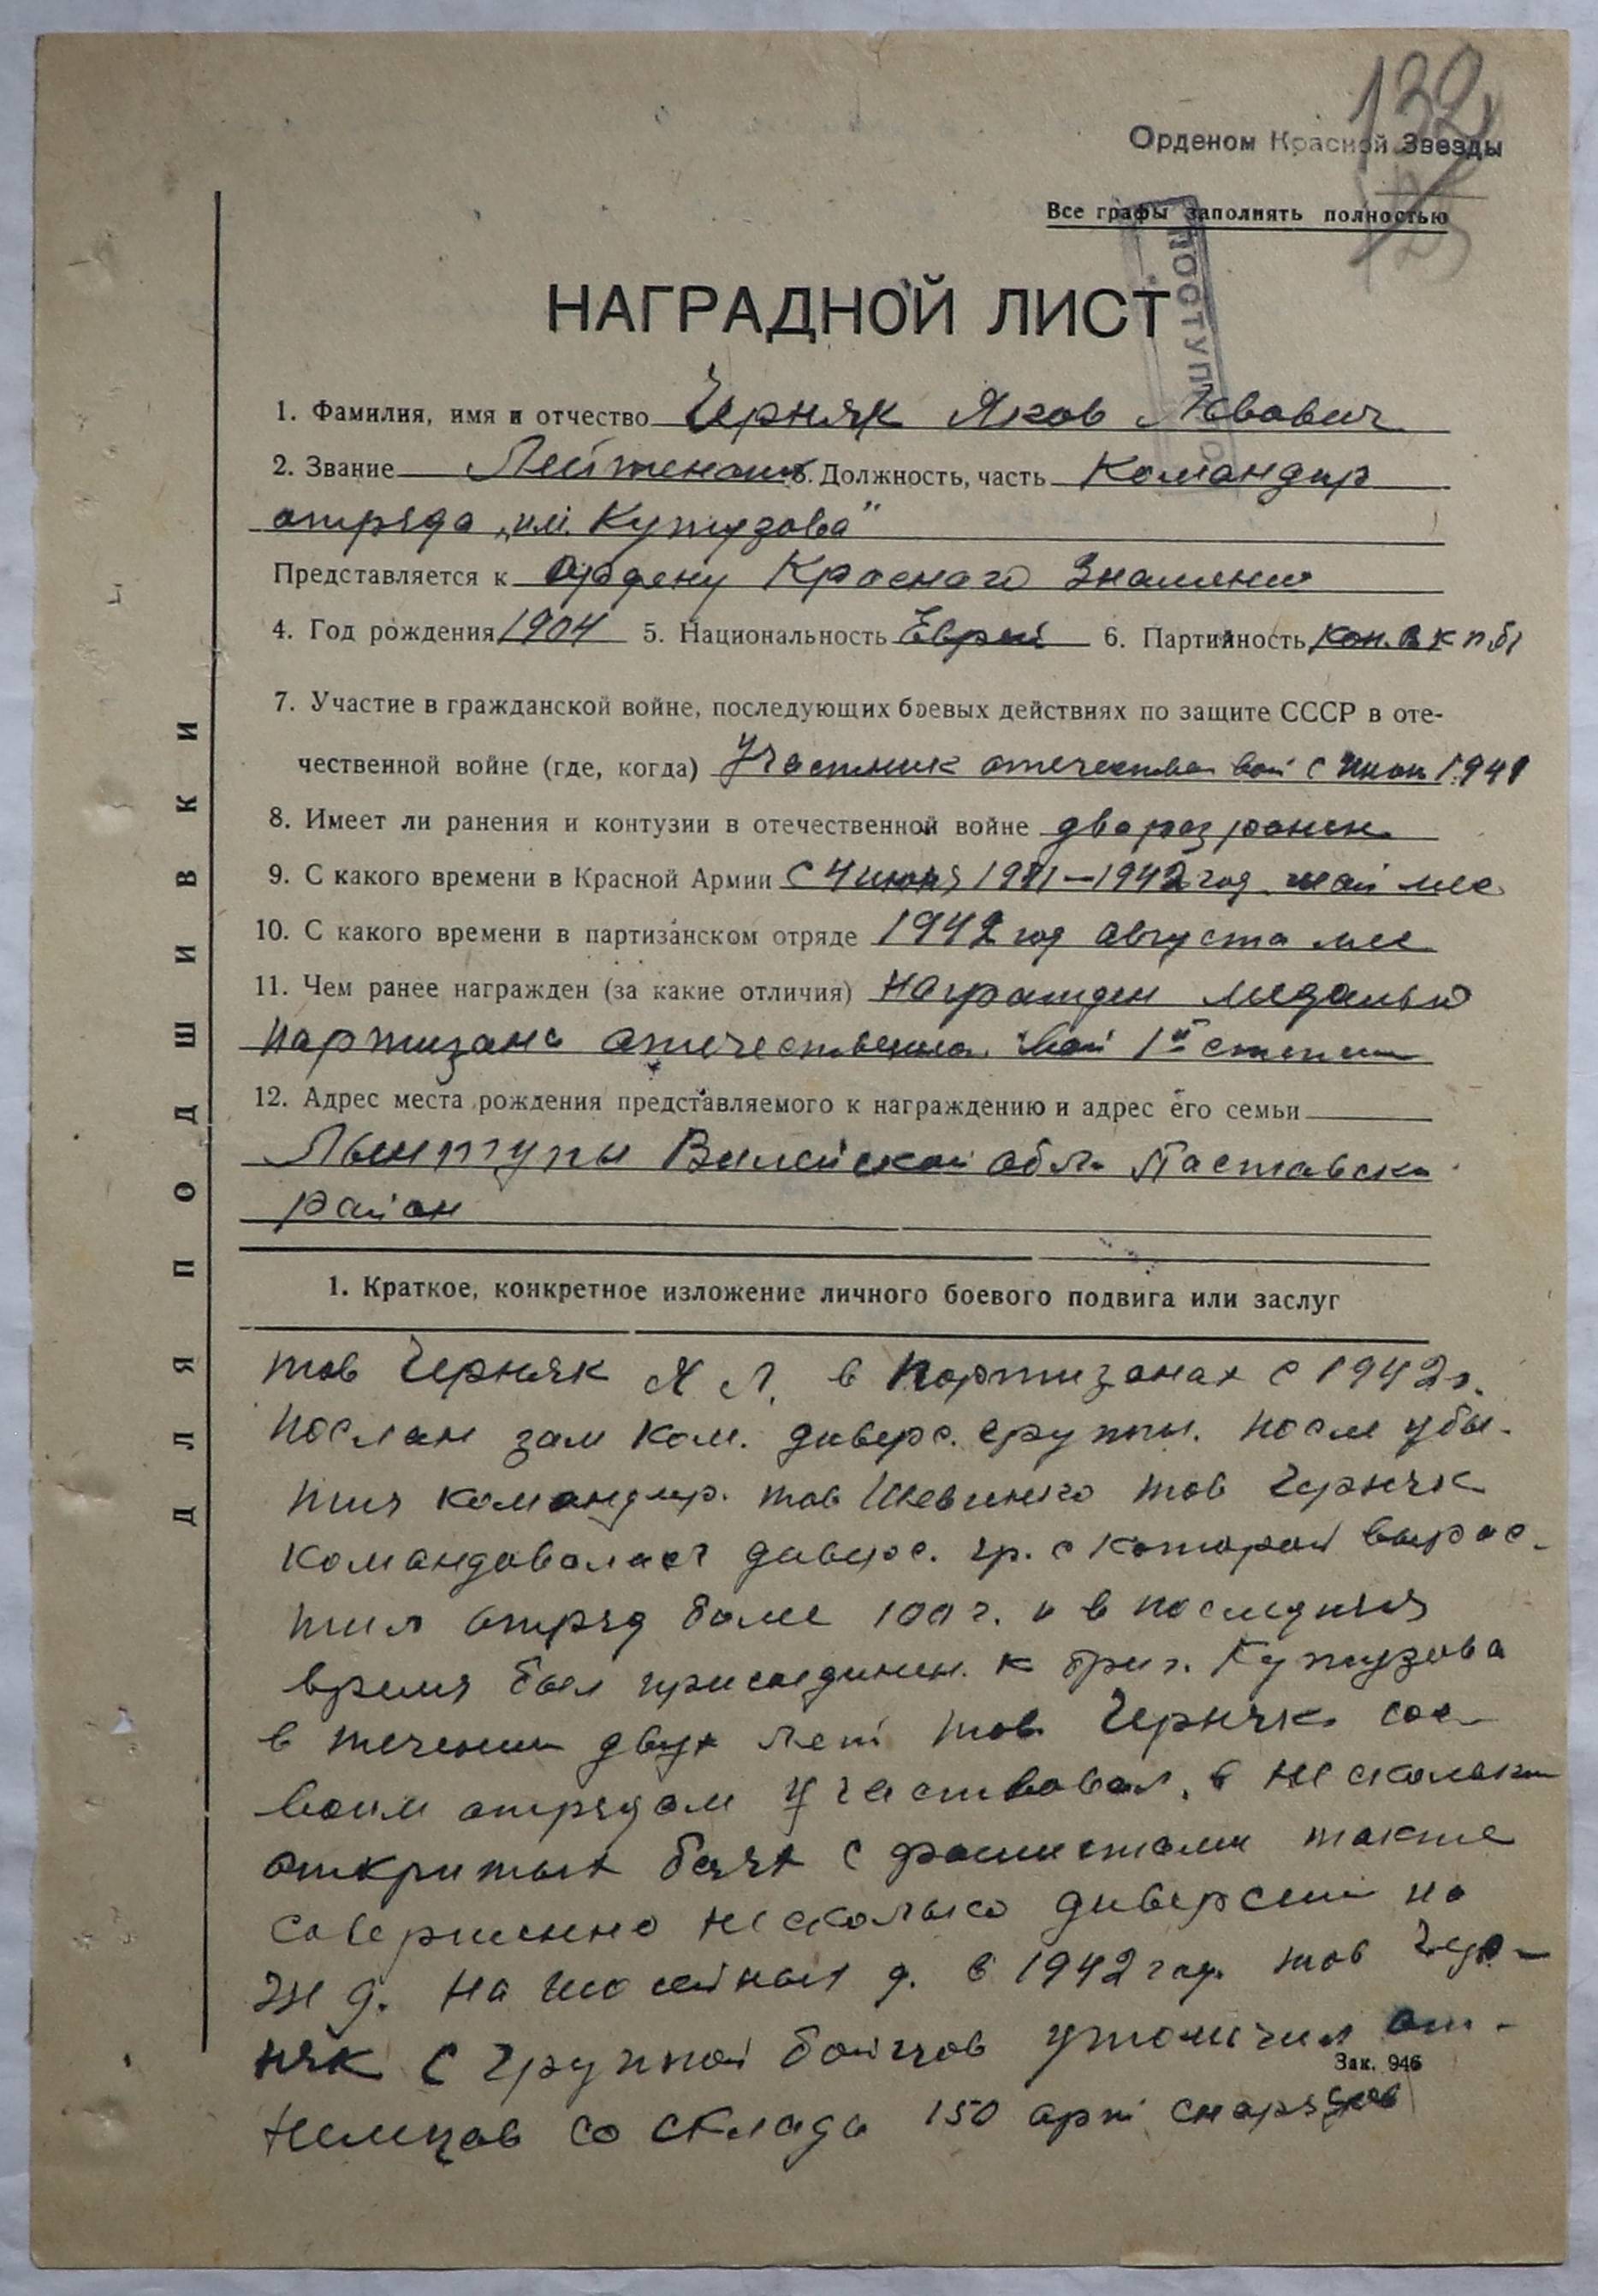 132
Орденом Красной Звезды
Все графы заполнять полностью
ПОСТУПИЛО
НАГРАДНОЙ ЛИСТ
1. Фамилия, имя и отчество Черняк Яков Львович
2. Звание Лейтенант 3. Должность, часть Командир
отряда „им. Кутузова"
Представляется к Ордену Красного Знамени
4. Год рождения 1904 5. Национальность Еврей 6. Партийность кан. ВКПб
7. Участие в гражданской войне, последующих боевых действиях по защите СССР в оте-
чественной войне (где, когда) Участник отечествен вой с июня 1941
8. Имеет ли ранения и контузии в отечественной войне два раз ранен.
9. С какого времени в Красной Армии С 4 июня 1941–1942 год май мес.
10. С какого времени в партизанском отряде 1942 год августа мес
11. Чем ранее награжден (за какие отличия) Награжден медалью
партизана отечественно. вой 1й степени
12. Адрес места рождения представляемого к награждению и адрес его семьи
Лынтупы Вилейской обл. Паставски
район
1. Краткое, конкретное изложение личного боевого подвига или заслуг
тов Черняк Я Л. в партизанах с 1942г.
послан зам ком. диверс. группы. после убы-
тия командир. тов Шевченко тов Черняк
командовал диверс. гр. с которой вырос-
тил отряд боле 100 ч. и в последняя
время был присоединен. к бриг. Кутузова
в течении двух лет тов. Черняк. сос
воим отрядом участвовал. в несколких
открытых боях с фашистами также
совершенно несколько диверсий на
ж д. на шосейных д. в 1942 год. тов Чер-
няк с групой бойцов утощил от-
немцов со склада 150 арт снарядов
Зак. 946
ДЛЯ ПОДШИВКИ